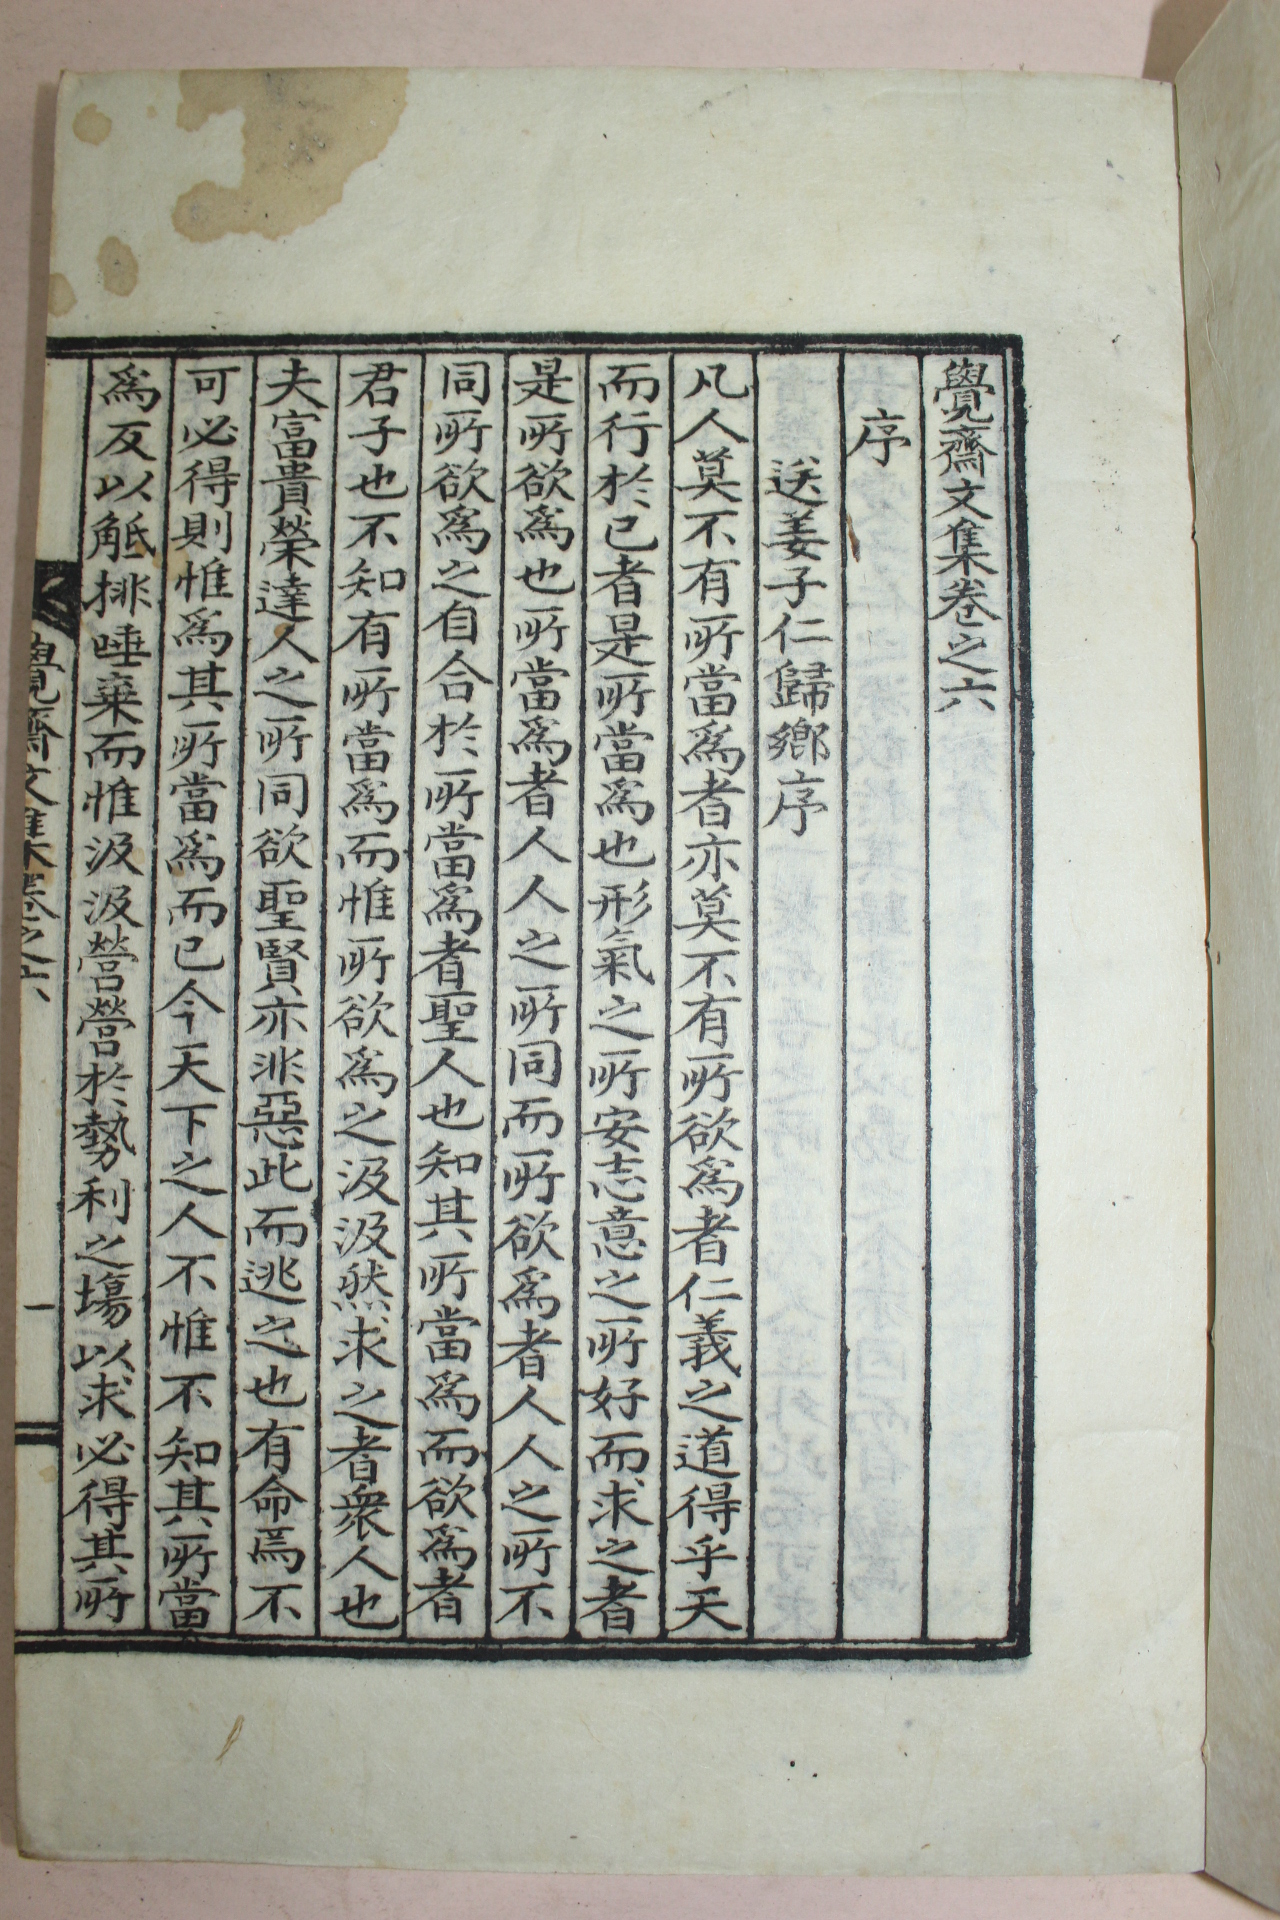 覺齋文集卷之六
序
送姜子仁歸鄉序
凡人莫不有所當爲者亦莫不有所欲爲者仁義之道得乎天
而行於己者是所當爲也形氣之所安志意之所好而求之者
是所欲爲也所當爲者人人之所同而所欲爲者人人之所不
同所欲爲之自合於所當爲者聖人也知其所當爲而欲爲者
君子也不知有所當爲而惟所欲爲之汲汲然求之者衆人也
夫富貴榮達人之所同欲聖賢亦非惡此而逃之也有命焉不
可必得則惟爲其所當爲而已今天下之人不惟不知其所當
爲反以觝排唾棄而惟汲汲營營於勢利之塲以求必得其所
覺齋文集卷之六
一